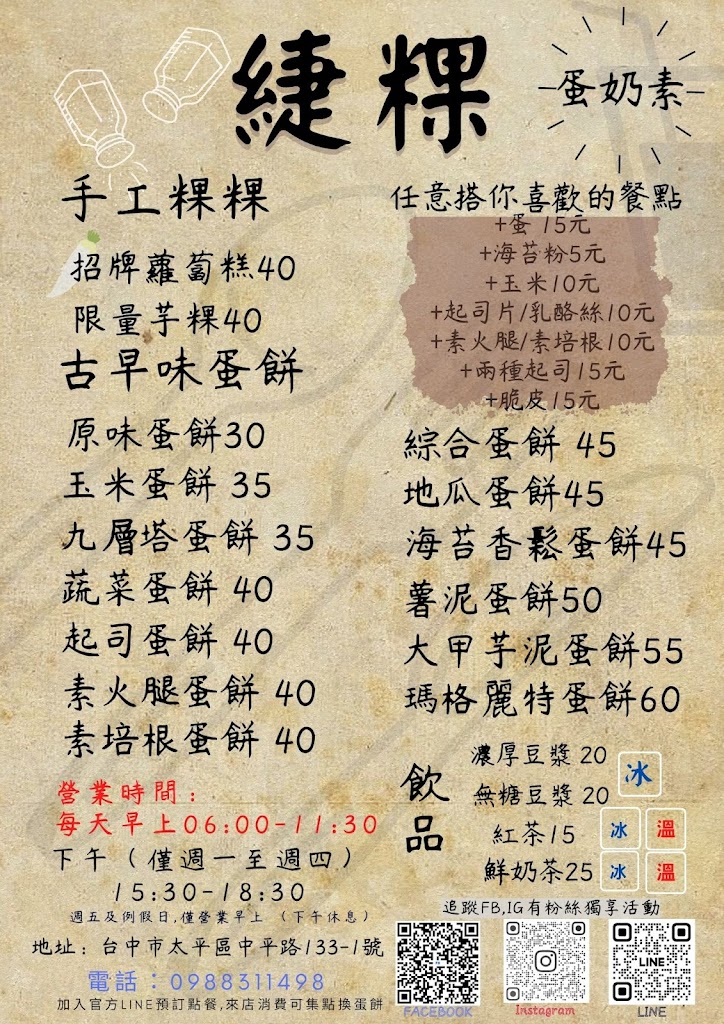 緁粿
蛋奶素
手工粿粿
招牌蘿蔔糕40
限量芋粿40
古早味蛋餅
原味蛋餅30
玉米蛋餅 35
九層塔蛋餅 35
蔬菜蛋餅 40
起司蛋餅 40
素火腿蛋餅 40
素培根蛋餅 40
任意搭你喜歡的餐點
+蛋 15元
+海苔粉5元
+玉米10元
+起司片/乳酪絲10元
+素火腿/素培根10元
+兩種起司15元
+脆皮15元
綜合蛋餅 45
地瓜蛋餅45
海苔香鬆蛋餅45
薯泥蛋餅50
大甲芋泥蛋餅55
瑪格麗特蛋餅60
飲品
濃厚豆漿 20
無糖豆漿 20
冰
紅茶15 冰 溫
鮮奶茶25 冰 溫
營業時間：
每天早上06:00-11:30
下午（僅週一至週四）
15:30-18:30
週五及例假日,僅營業早上 （下午休息）
地址：台中市太平區中平路133-1號
電話：0988311498
加入官方LINE預訂點餐,來店消費可集點換蛋餅
追蹤FB,IG有粉絲獨享活動
LINE
FACEBOOK
Instagram
LINE